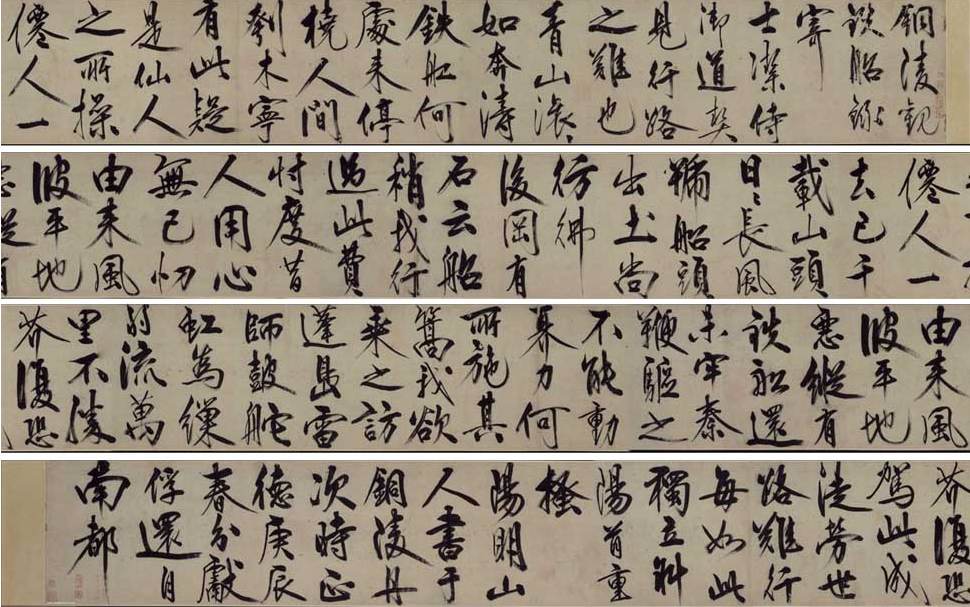 銅陵觀
鉄船
寄
士潔侍
御道契
見行路
之難也
青山滚〻
如奔濤
鉄舡何
處来停
橈人間
刳木寧
有此疑
是仙人
之所操
僊人一
僊人一
去已千
載山頭
日〻長風
號船頭
出土尚
彷彿
後岡有
石云船
稍我行
過此費
忖度昔
人用心
無已忉
由来風
波平地
由来風
波平地
惡縱有
鉄舡還
未牢秦
鞭驅之
不能動
奡力何
所施其
篙我欲
乘之訪
蓬島雷
師鼓舵
虹為繅
弱流萬
里不勝
芥復恐
芥復恐
駕此成
徒勞世
路難行
每如此
獨立斜
陽首重
搔
陽明山
人書于
銅陵舟
次時正
德庚辰
春分獻
俘還自
南都